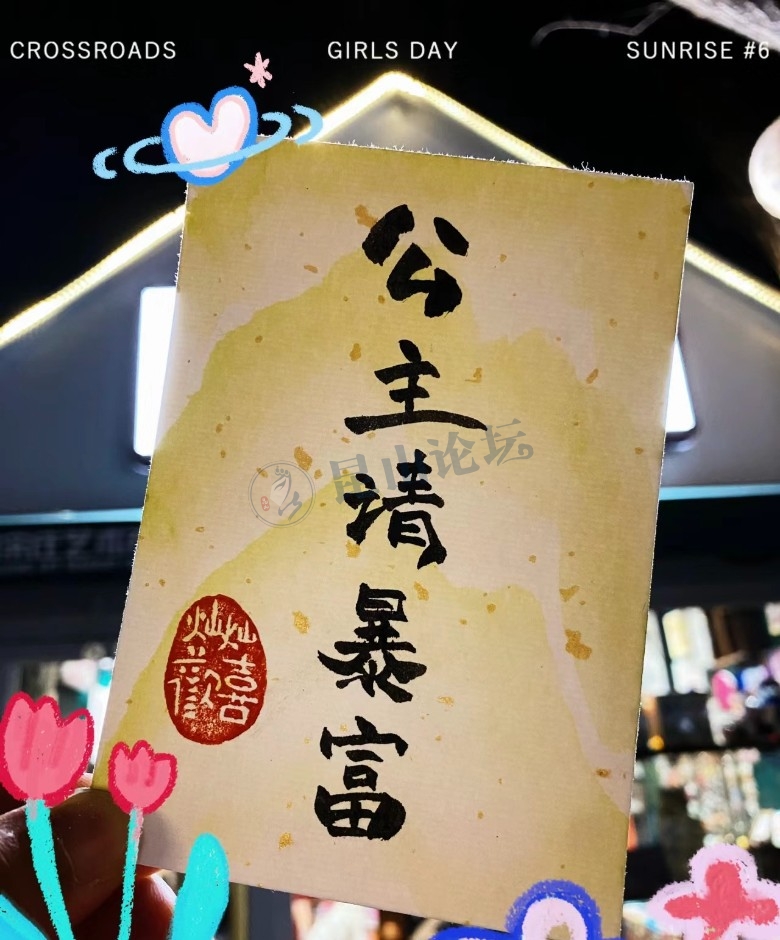 CROSSROADS GIRLS DAY SUNRISE #6
公主请暴富
昆山论坛
灿灿
喜欢